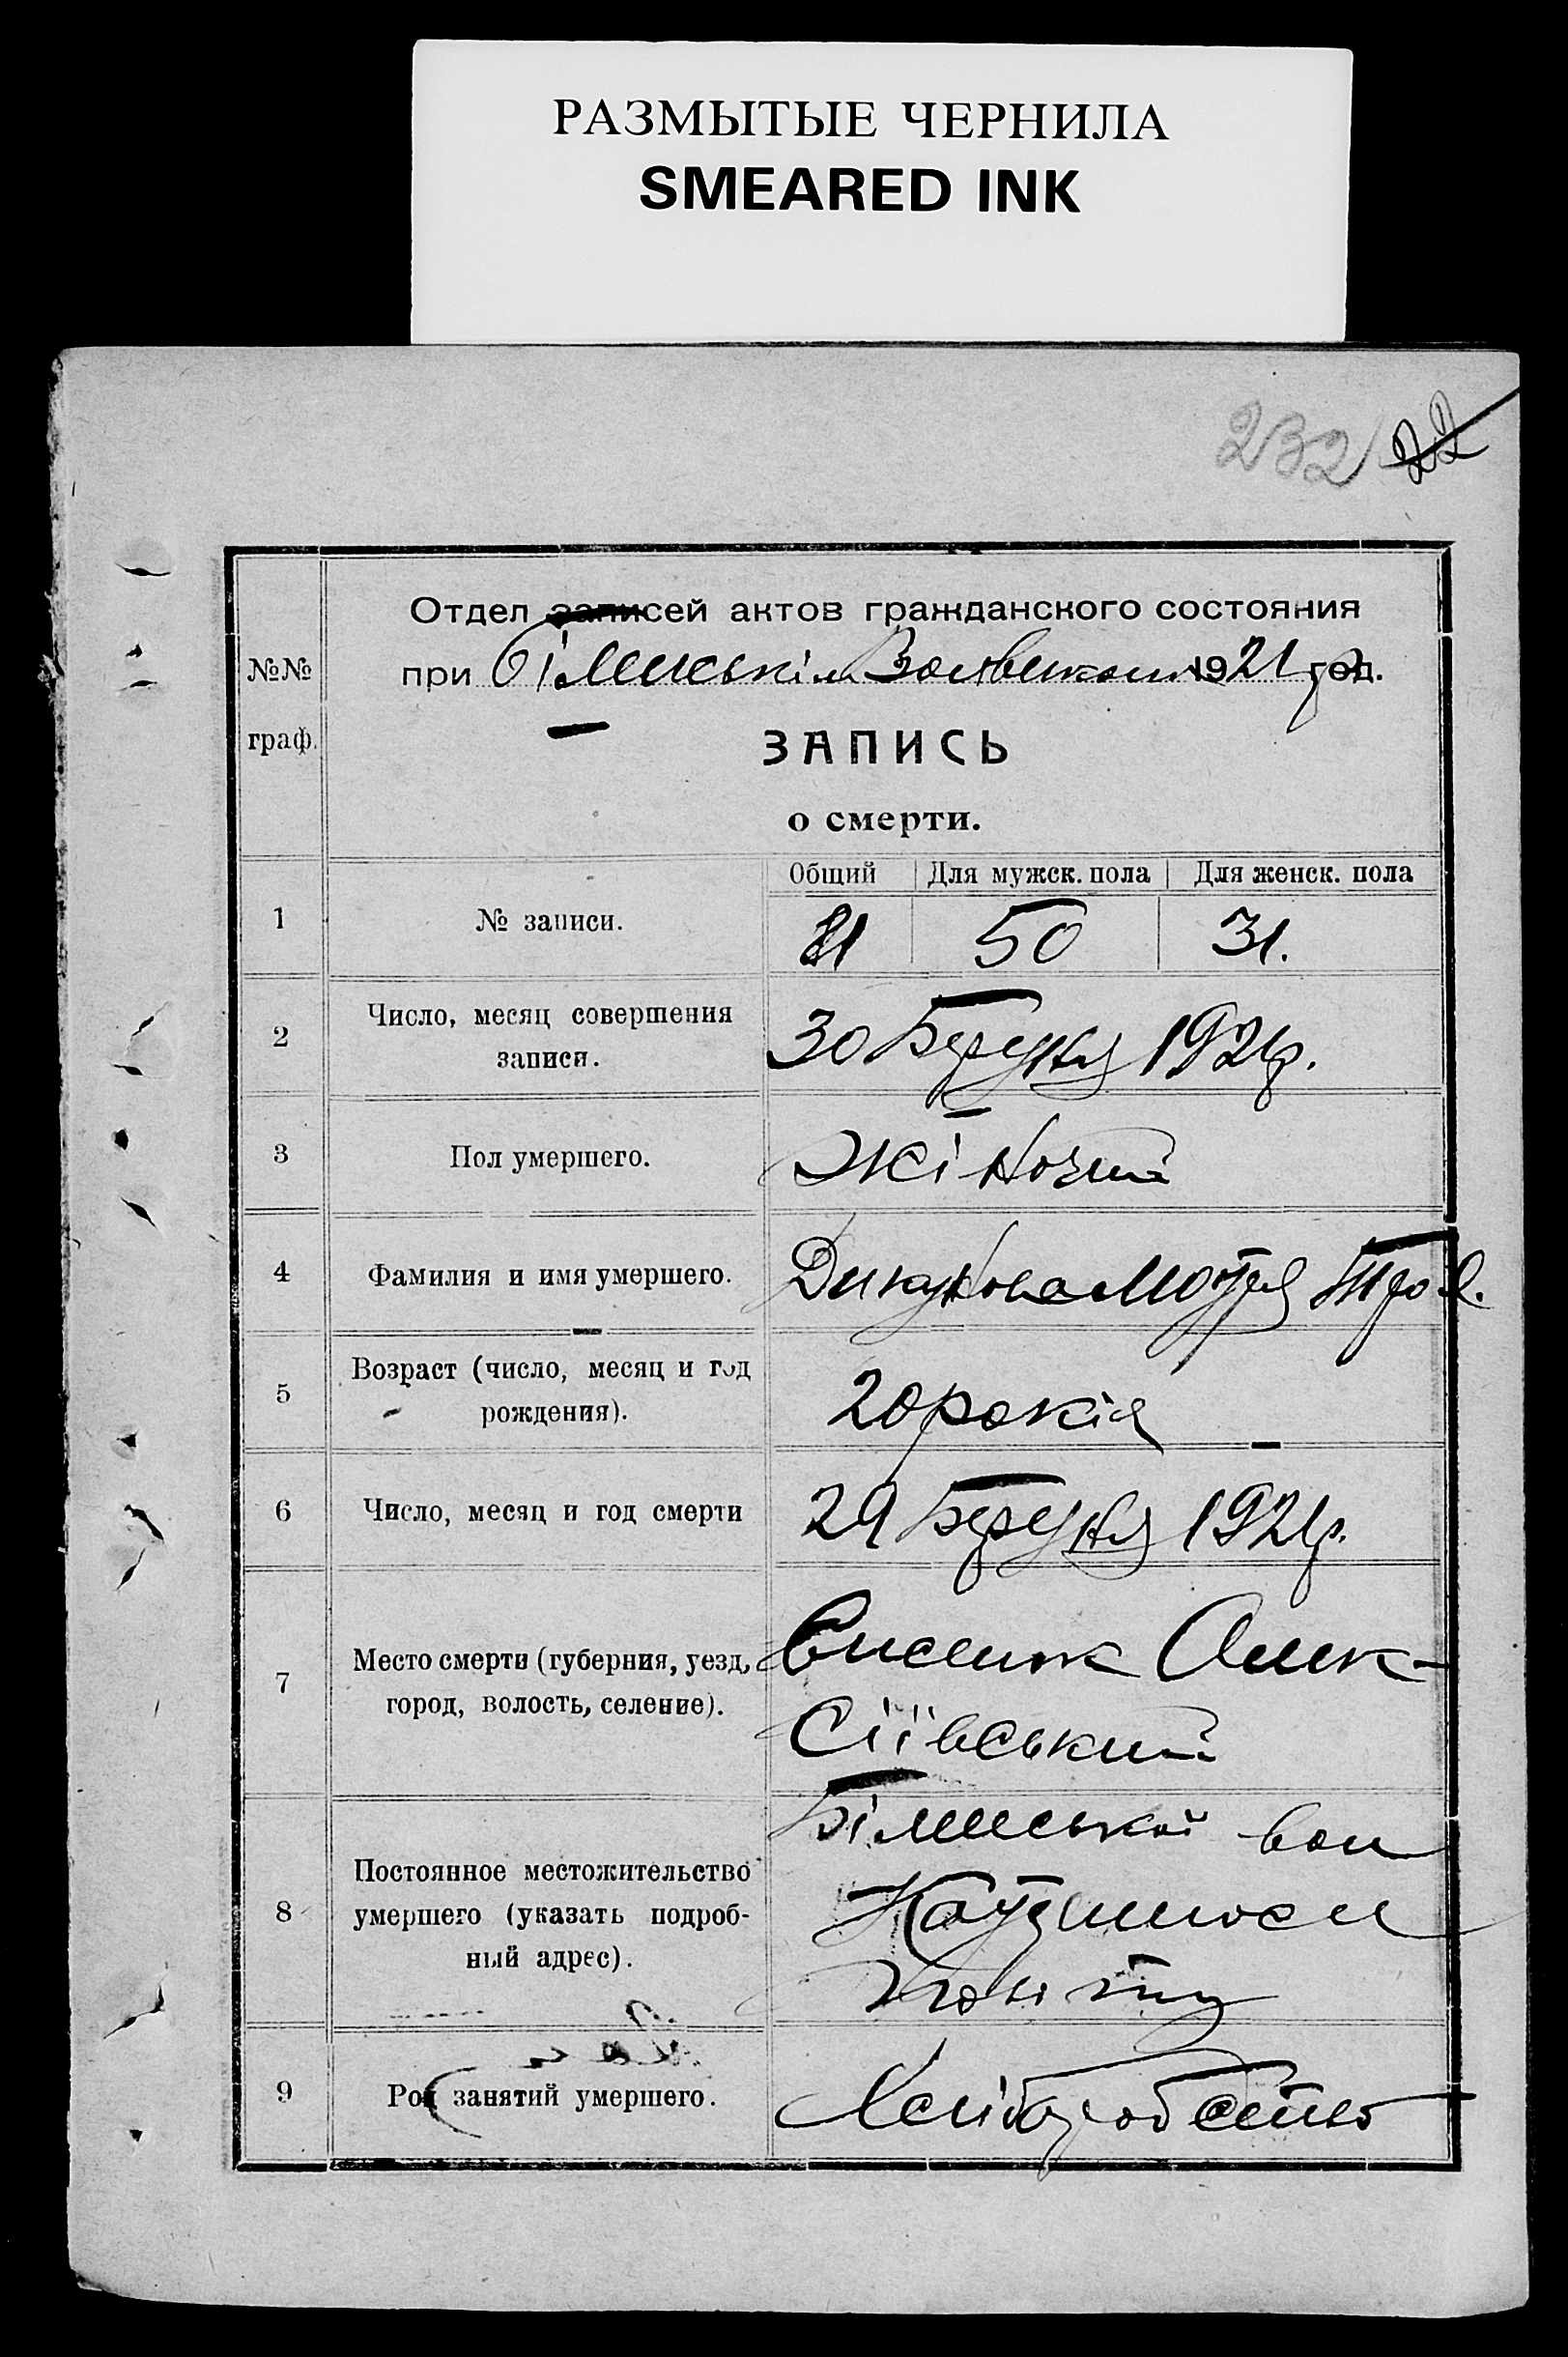 РАЗМЫТЫЕ ЧЕРНИЛА
SMEARED INK
232 22
Отдел записей актов гражданского состояния
при Білменськім Волвикони 1921 р год.
№№
граф.
ЗАПИСЬ
о смерти.
Общий Для мужск. пола Для женск. пола
1 № записи. 81 50 31.
2 Число, месяц совершения
записи. 30 Березня 1921р.
3 Пол умершего. Жіночий
4 Фамилия и имя умершего. Дикунова Мотря
5 Возраст (число, месяц и год
рождения). 20 років
6 Число, месяц и год смерти 29 Березня 1921р.
7 Место смерти (губерния, уезд,
город, волость, селение). Виселок Олек-
сіївський
8 Постоянное местожительство
умершего (указать подроб-
ный адрес). Білменської вол
повіту
9 Род занятий умершего. Хліборобство